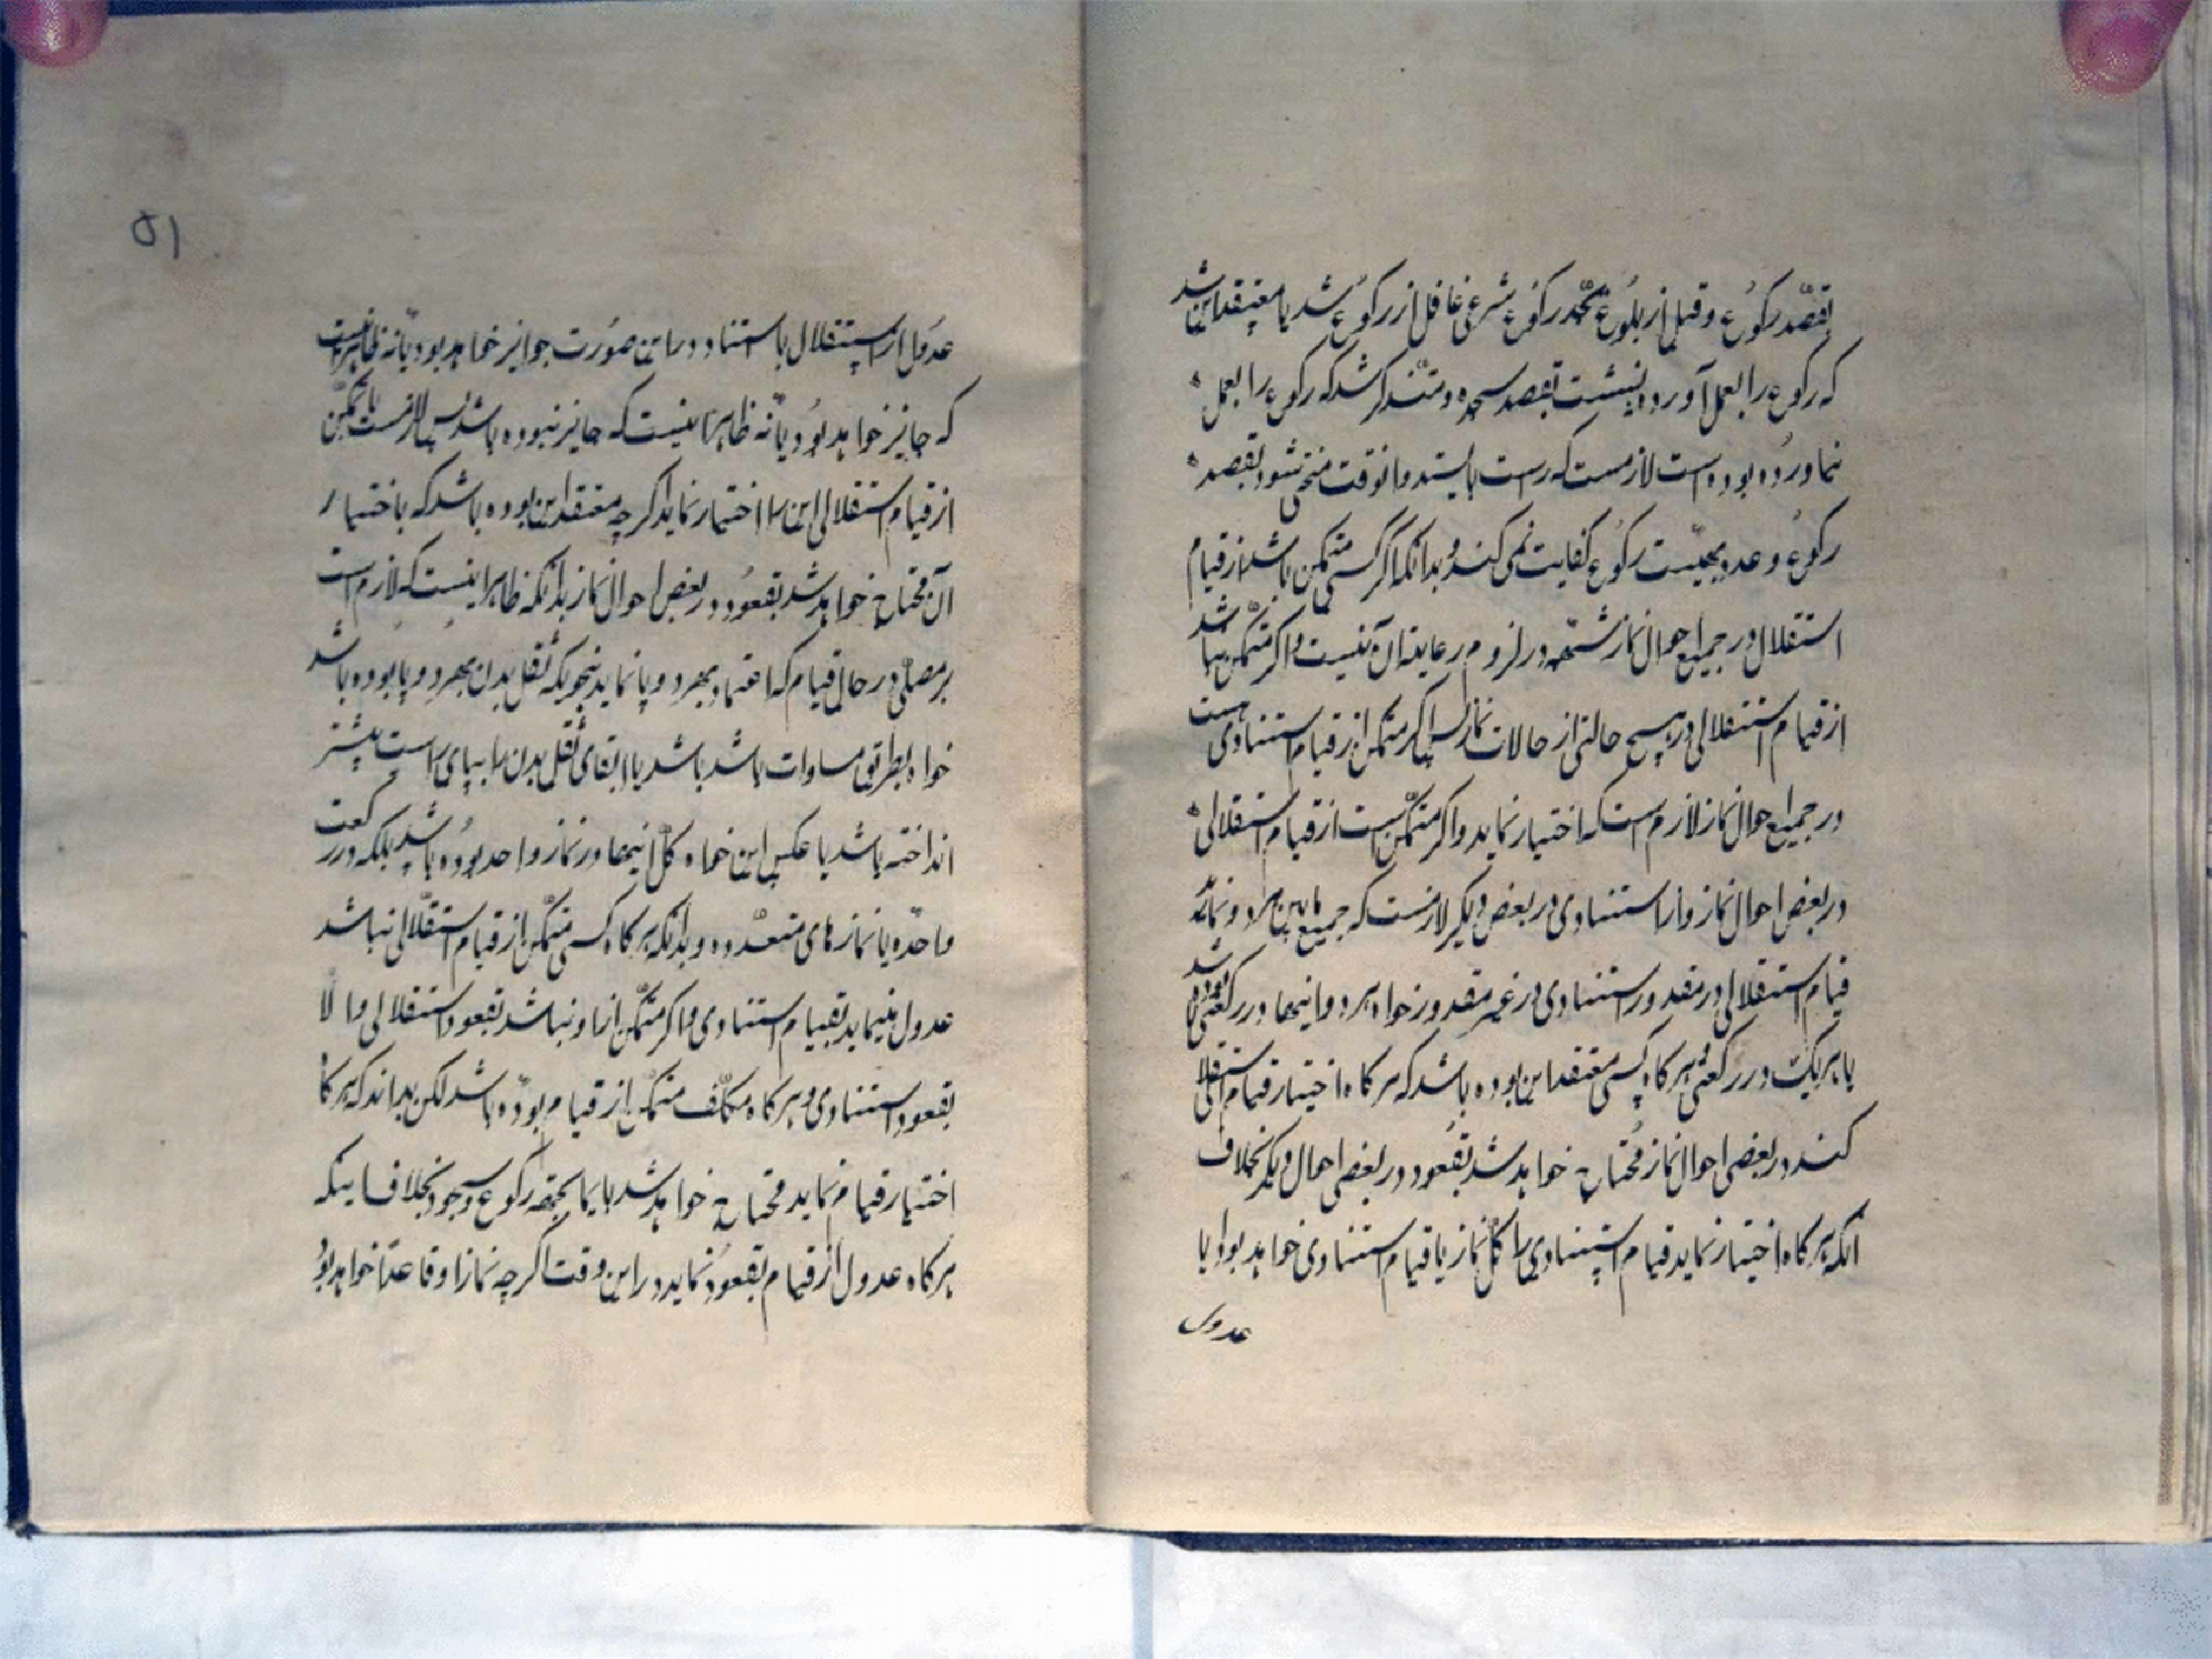 بقصد رکوع و قبل از بلوغ بحد رکوع شرعی غافل از رکوع شد یا معتقد این شد
که رکوع را بعمل آورده نشست بقصد سجده و متذکر شد که رکوع را بعمل
نیاورده بوده است لازمست که راست بایستد و انوقت منحنی شود بقصد
رکوع و عود بهیئت رکوع کفایت نمی کند و بدانکه اگر کسی متمکن باشد از قیام
استقلال در جمیع احوال نماز شبهه در لزوم رعایت ان نیست و اکر متمکن نباشد
از قیام استقلالی در هیچ حالتی از حالات نماز پس اکر متمکن از قیام استنادی است
در جمیع احوال نماز لازم است که اختیار نماید و اکر متمکن است از قیام استقلالی
در بعض احوال نماز و از استنادی در بعض دیکر لازمست که جمیع مابین هر دو نماید
قیام استقلالی در مقدور و استنادی در غیر مقدور خواه هر دو اینها در رکعتی بوده باشد
یا هر یک در رکعتی و هر کاه کسی معتقد این بوده باشد که هر کاه اختیار قیام استقلالی
کند در بعضی احوال نماز محتاج خواهد شد بقعود در بعضی احوال دیکر بخلاف
انکه هر کاه اختیار نماید قیام استنادی را کل نماز یا قیام استنادی خواهد بود ایا
عدول
۵۱
عدول از استقلال باستناد در این صورت جوایز خواهد بود یا نه ظاهر اینست
که جایز خواهد بود یا نه ظاهرا اینست که جایز نبوده باشد پس لازمست با تمکن
از قیام استقلالی این را اختیار نماید اکر چه معتقد این بوده باشد که باختیار
آن محتاج خواهد شد بقعود در بعض احوال نماز بدانکه ظاهرا اینست که لازم است
بر مصلی در حال قیام که اعتماد بهر دو پا نماید بنحویکه ثقل بدن بهر دو پا بوده باشد
خواه بطریق مساوات باشد باشد یا ابقای ثقل بدن را بپای راست بیشتر
انداخته باشد یا عکس این خواه کل اینها در نماز واحد بوده باشد بلکه در رکعت
واحده یا نمازهای متعدده و بدانکه هر کاه کسی متمکن از قیام استقلالی نباشد
عدول مینماید بقیام استنادی و اکر متمکن از او نباشد بقعود استقلالی والا
بقعود استنادی و هر کاه مکلف متمکن از قیام بوده باشد لکن بداند که هر کاه
اختیار قیام نماید محتاج خواهد شد بایما بجهه رکوع و سجود بخلاف اینکه
هر کاه عدول از قیام بقعود نماید در این وقت اکر چه نماز او قاعدًا خواهد بود